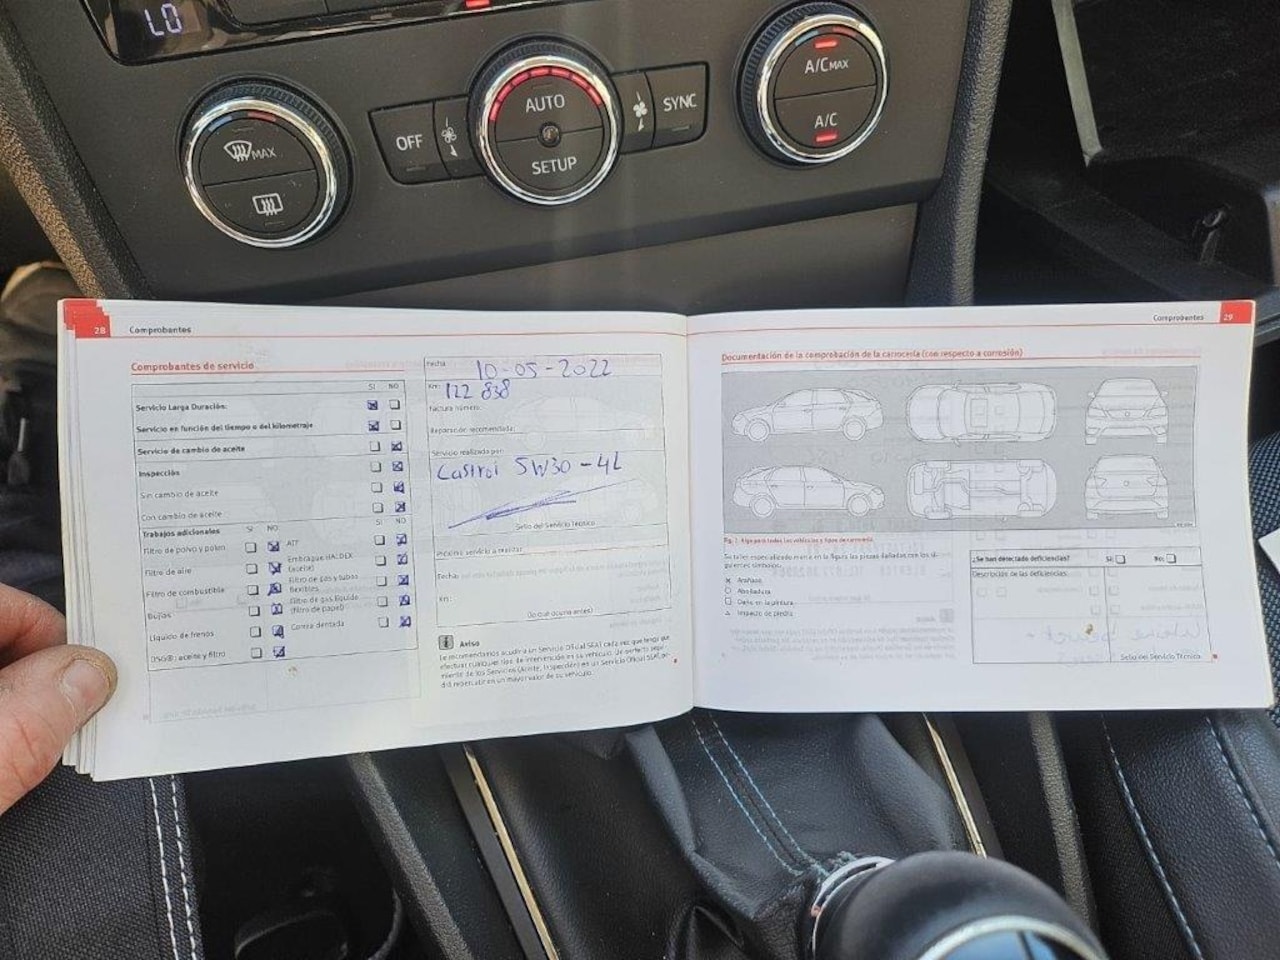 LO
MAX
OFF
AUTO
SETUP
SYNC
A/C MAX
A/C
28 Comprobantes
Comprobantes de servicio
SI NO
Servicio Larga Duración:
Servicio en función del tiempo o del kilometraje
Servicio de cambio de aceite
Inspección
Sin cambio de aceite
Con cambio de aceite
Trabajos adicionales
SI NO
SI NO
Filtro de polvo y polen
Filtro de aire
Filtro de combustible
Bujías
Líquido de frenos
DSG®: aceite y filtro
ATF
Embrague HALDEX
(aceite)
Filtro de gas y tubos
flexibles
Filtro de gas líquido
(filtro de papel)
Correa dentada
Fecha: 10-05-2022
Km: 122 838
Factura número:
Reparación recomendada:
Servicio realizado por:
Castrol 5W30-4L
Sello del Servicio Técnico
Próximo servicio a realizar
Fecha:
Km:
(lo que ocurra antes)
Aviso
Le recomendamos acudir a un Servicio Oficial SEAT cada vez que tenga que
efectuar cualquier tipo de intervención en su vehículo.
Comprobantes 29
Documentación de la comprobación de la carrocería (con respecto a corrosión)
Fig. 1 Rige para todos los vehículos y tipos de carrocería.
Arañazo
Abolladura
Daño en la pintura
Impacto de piedra
¿Se han detectado deficiencias? Sí: No:
Descripción de las deficiencias:
Sello del Servicio Técnico